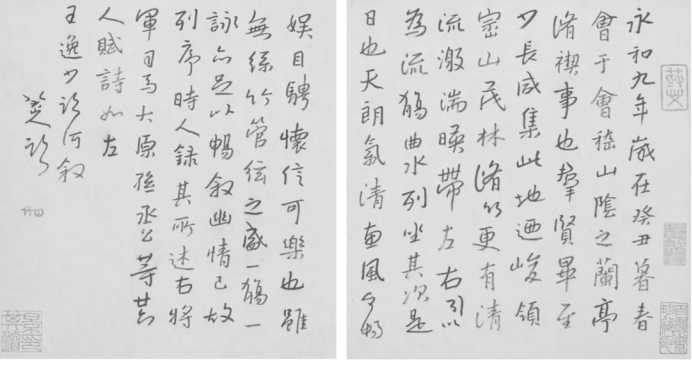 永和九年歲在癸丑暮春
會于會稽山陰之蘭亭
脩禊事也羣賢畢至
少長咸集此地迺峻領
崇山茂林脩竹更有清
流激湍暎帶左右引以
為流觴曲水列坐其次是
日也天朗氣清惠風和暢
娛目騁懷信可樂也雖
無絲竹管弦之盛一觴一
詠亦足以暢敘幽情已故
列序時人錄其所述右將
軍司馬大原孫丞公等廿六
人賦詩如左
王逸少臨河敘
八大臨